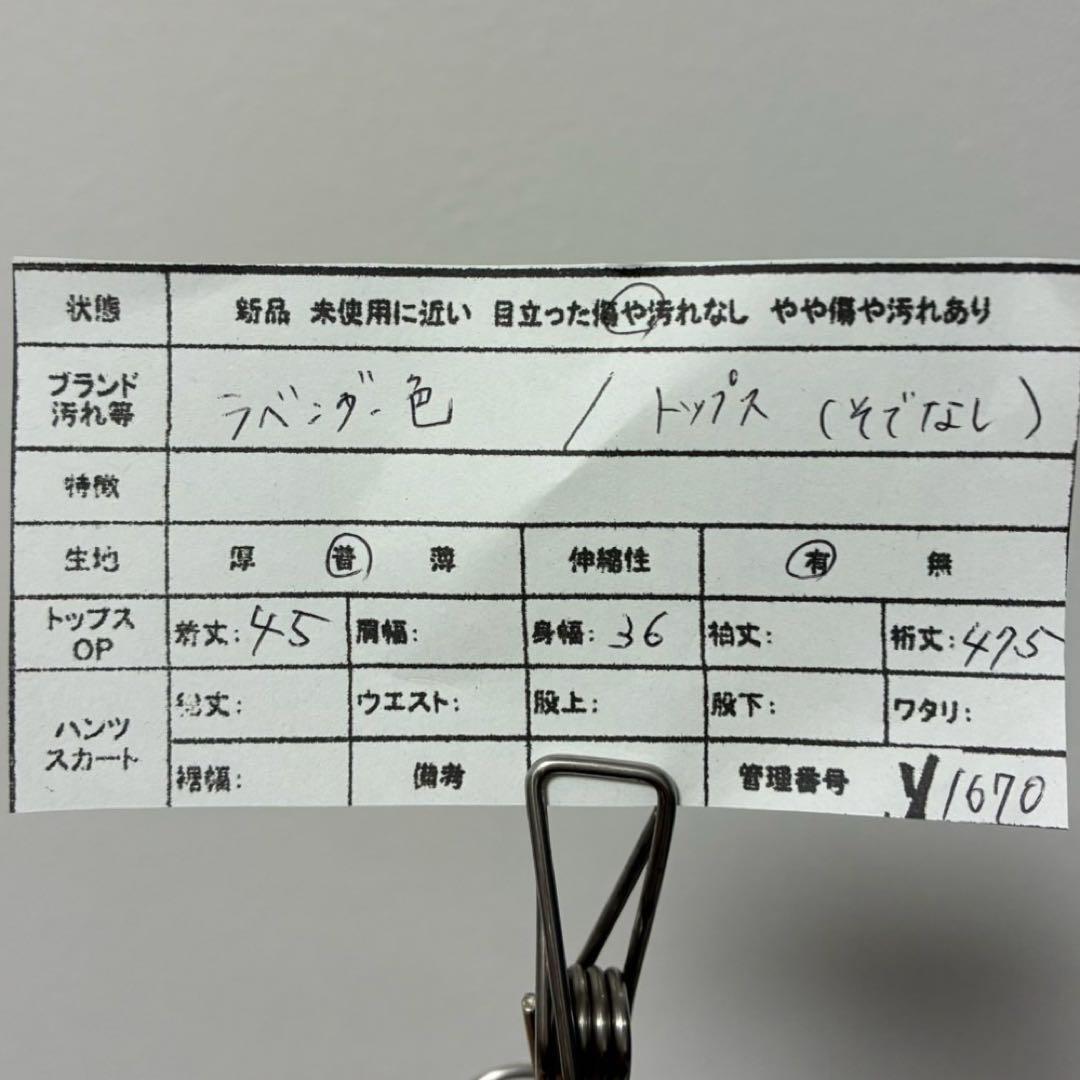 状態 新品 未使用に近い 目立った傷や汚れなし やや傷や汚れあり
ブランド
汚れ等 ラベンダー色 / トップス (そでなし)
特徴
生地 厚 普 薄 伸縮性 有 無
トップス
OP 着丈: 45 肩幅: 身幅: 36 袖丈: 裄丈: 47.5
パンツ
スカート 総丈: ウエスト: 股上: 股下: ワタリ:
裾幅: 備考 管理番号 y1670